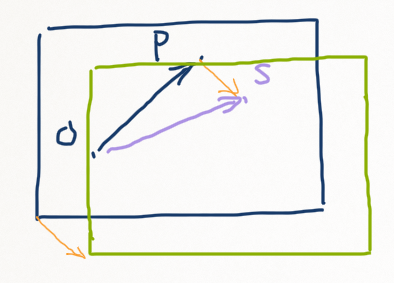 P
S
O